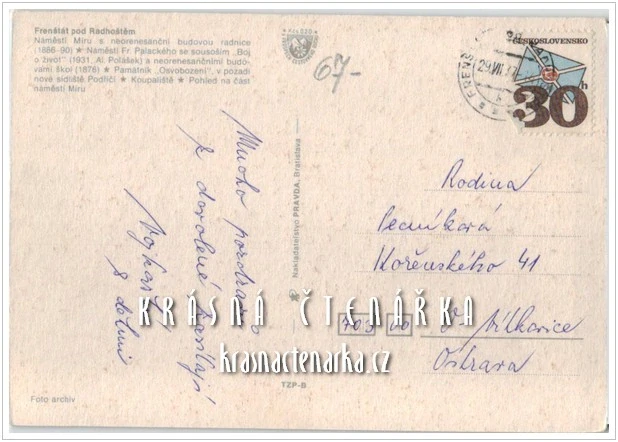 Frenštát pod Radhoštěm
Náměstí Míru s neorenesanční budovou radnice
(1886-90) ★ Náměstí Fr. Palackého se sousoším „Boj
o život" (1931, Al. Polášek) a neorenesančními budo-
vami škol (1876) ★ Památník „Osvobození", v pozadí
nové sídliště Podříčí ★ Koupaliště ★ Pohled na část
náměstí Míru
67-
ČESKOSLOVENSKO
30h
29.VII.
Mnoho pozdravů
z dovolené zasílají
s dětmi
Nakladatelství PRAVDA, Bratislava
Rodina
Pecníková
Kořenského 41
703 00 O-Vítkovice
Ostrava
KRÁSNÁ ČTENÁŘKA
krasnactenarka.cz
TZP-B
Foto archiv